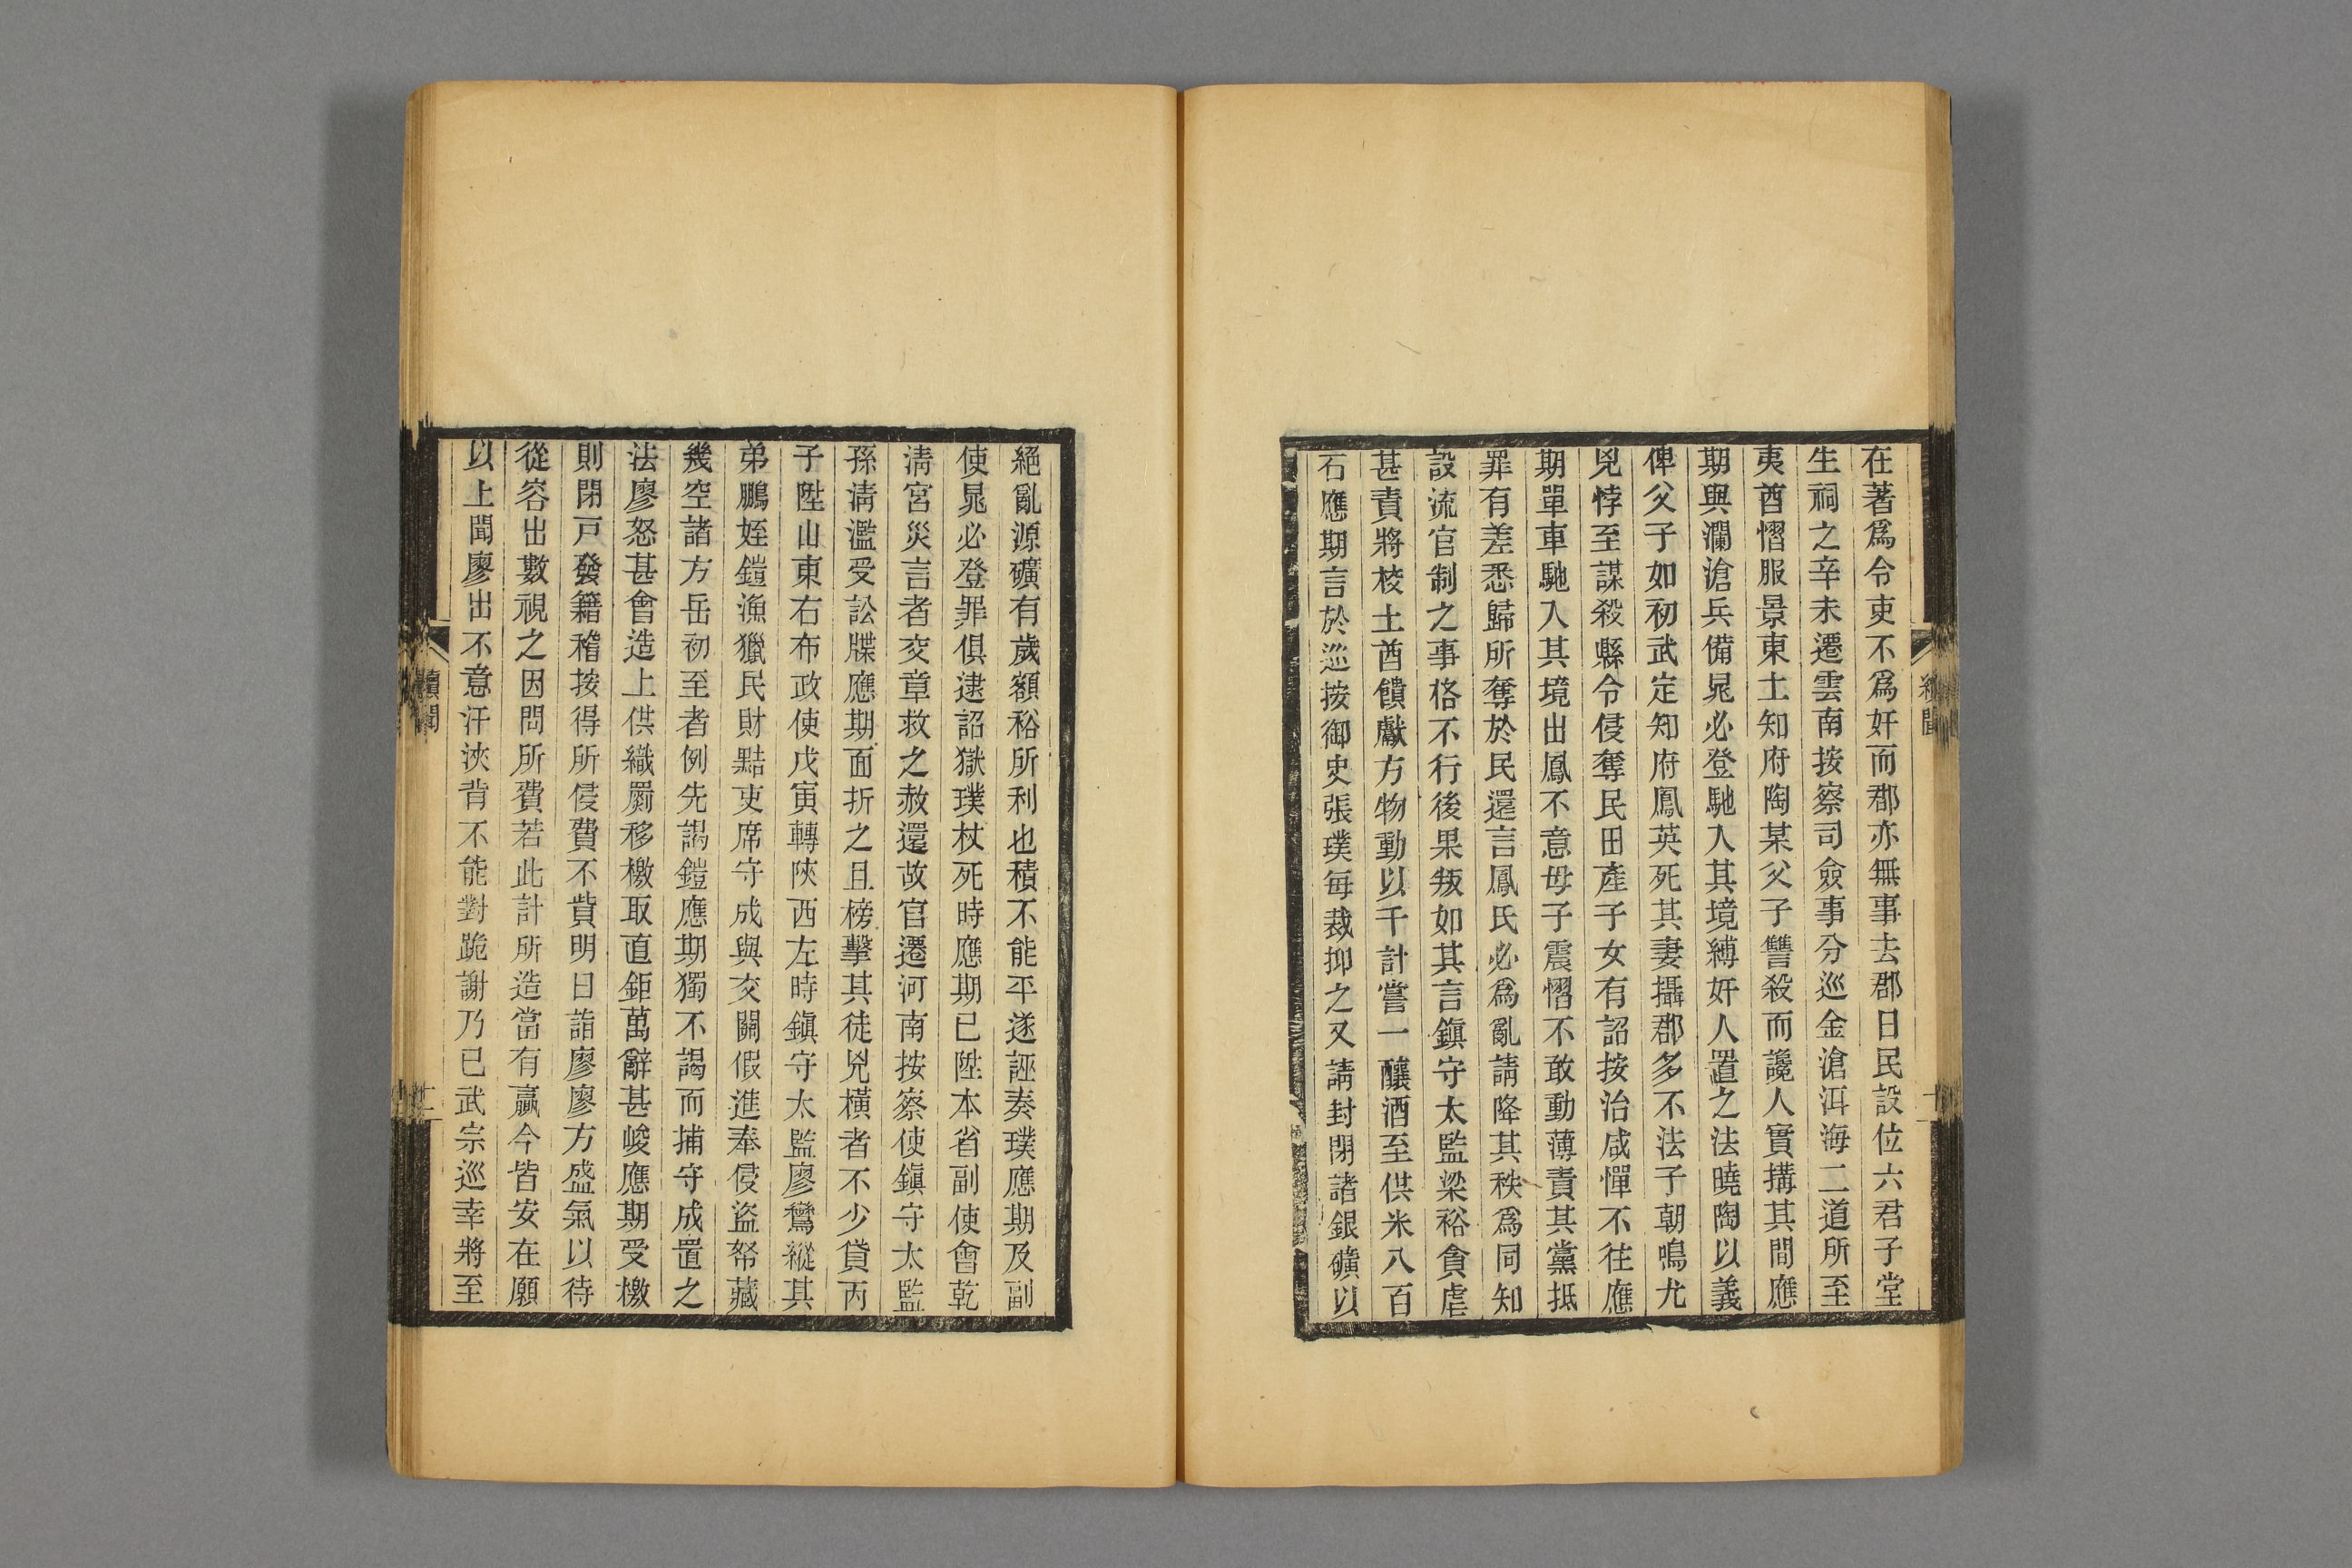 在著爲令吏不爲奸而郡亦無事去郡日民設位六君子堂
生祠之辛未遷雲南按察司僉事分巡金滄洱海二道所至
夷酋慴服景東土知府陶某父子讐殺而讒人實搆其間應
期與瀾滄兵備晁必登馳入其境縛奸人置之法曉陶以義
俾父子如初武定知府鳳英死其妻攝郡多不法子朝鳴尤
兇悖至謀殺縣令侵奪民田產子女有詔按治咸憚不往應
期單車馳入其境出鳳不意母子震慴不敢動薄責其黨抵
罪有差悉歸所奪於民還言鳳氏必爲亂請降其秩爲同知
設流官制之事格不行後果叛如其言鎭守太監梁裕貪虐
甚責將校土酋饋獻方物動以千計嘗一釀酒至供米八百
石應期言於巡按御史張璞每裁抑之又請封閉諸銀礦以
絕亂源礦有歲額裕所利也積不能平遂誣奏璞應期及副
使晁必登罪俱逮詔獄璞杖死時應期已陞本省副使會乾
淸宮災言者交章救之赦還故官遷河南按察使鎭守太監
孫淸濫受訟牒應期面折之且榜擊其徒兇橫者不少貸丙
子陞山東右布政使戊寅轉陝西左時鎭守太監廖鸞縱其
弟鵬姪鎧漁獵民財黠吏席守成與交關假進奉侵盜帑藏
幾空諸方岳初至者例先謁鎧應期獨不謁而捕守成置之
法廖怒甚會造上供織罽移檄取直鉅萬辭甚峻應期受檄
則閉戸發籍稽按得所侵費不貲明日詣廖廖方盛氣以待
從容出數視之因問所費若此計所造當有贏今皆安在願
以上聞廖出不意汗浹背不能對跪謝乃已武宗巡幸將至
續聞